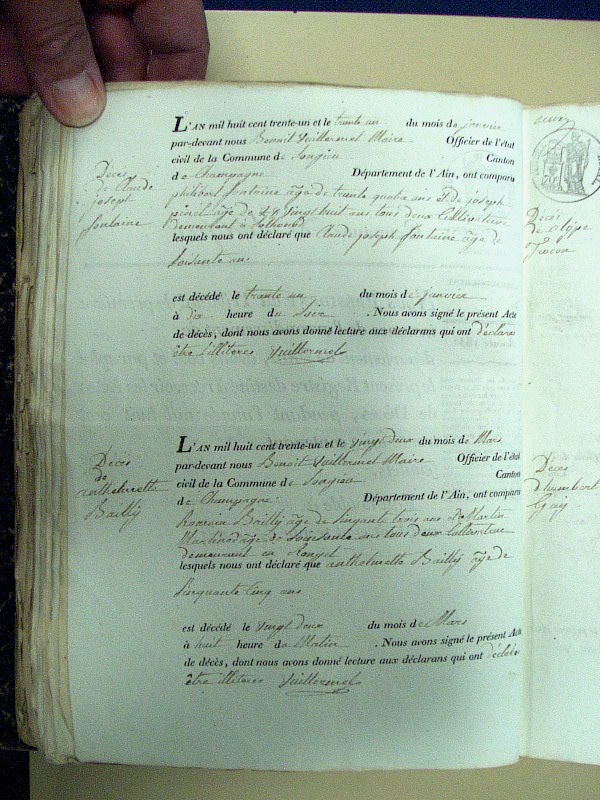 Décès
de Claude
joseph
fontaine
L'AN mil huit cent trente-un et le trente un du mois de janvier
par-devant nous Benoit Vuillermet Maire Officier de l'état
civil de la Commune de Songieu Canton
de Champagne Département de l'Ain, ont comparu
philibert fontaine âgé de trente quatre ans et de joseph
pinet âgé de vingt huit ans tous deux Cultivateurs
demeurant à
lesquels nous ont déclaré que Claude joseph fontaine âgé de
soisante un
est décédé le trente un du mois de janvier
à dix heure du Soir . Nous avons signé le présent Acte
de décès, dont nous avons donné lecture aux déclarans qui ont déclaré
être illiteres Vuillermet
Décès
de
anthelmette
Bailly
L'AN mil huit cent trente-un et le vingt deux du mois de Mars
par-devant nous Benoit Vuillermet Maire Officier de l'état
civil de la Commune de Songieu Canton
de Champagne Département de l'Ain, ont comparu
Bailly âgé de sinquante trois ans et Martin
âgé de soisante ans tous deux Cultivateur
demeurant en
lesquels nous ont déclaré que anthelmette Bailly âgé de
sinquante cinq ans
est décédé le vingt deux du mois de Mars
à huit heure du Matin . Nous avons signé le présent Acte
de décès, dont nous avons donné lecture aux déclarans qui ont déclaré
être illiteres Vuillermet
Décès
Décès
d'humbert